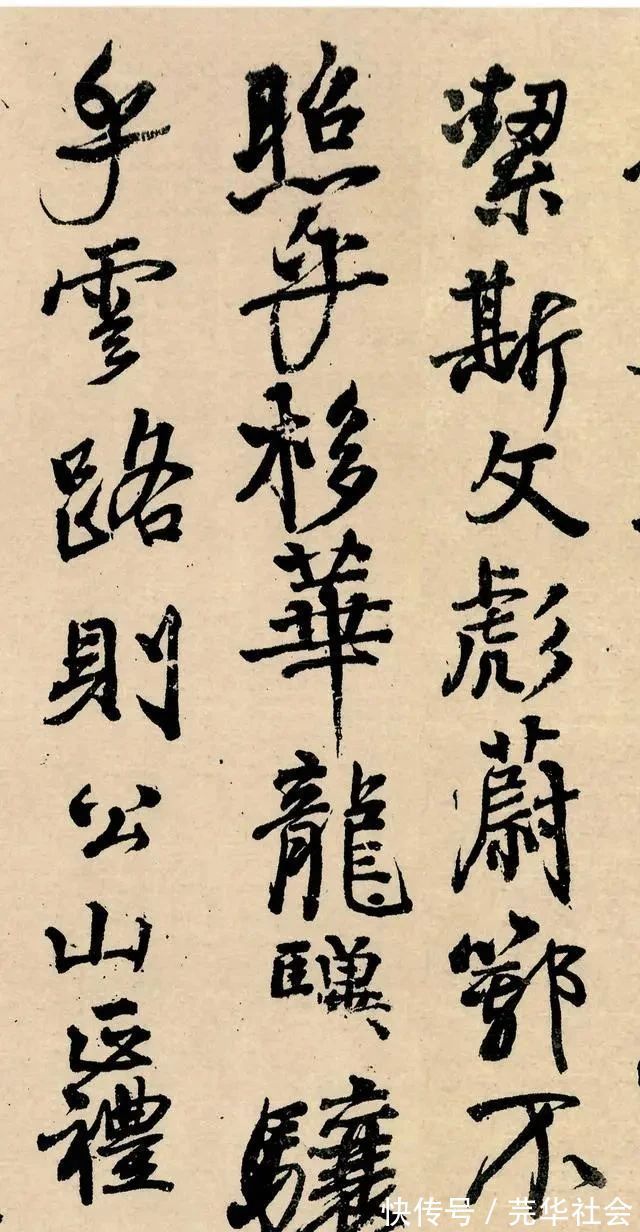 潔斯文彪蔚鄂不
照乎栘華龍驥驤
乎雲路則公山正禮
快传号／芜华社会